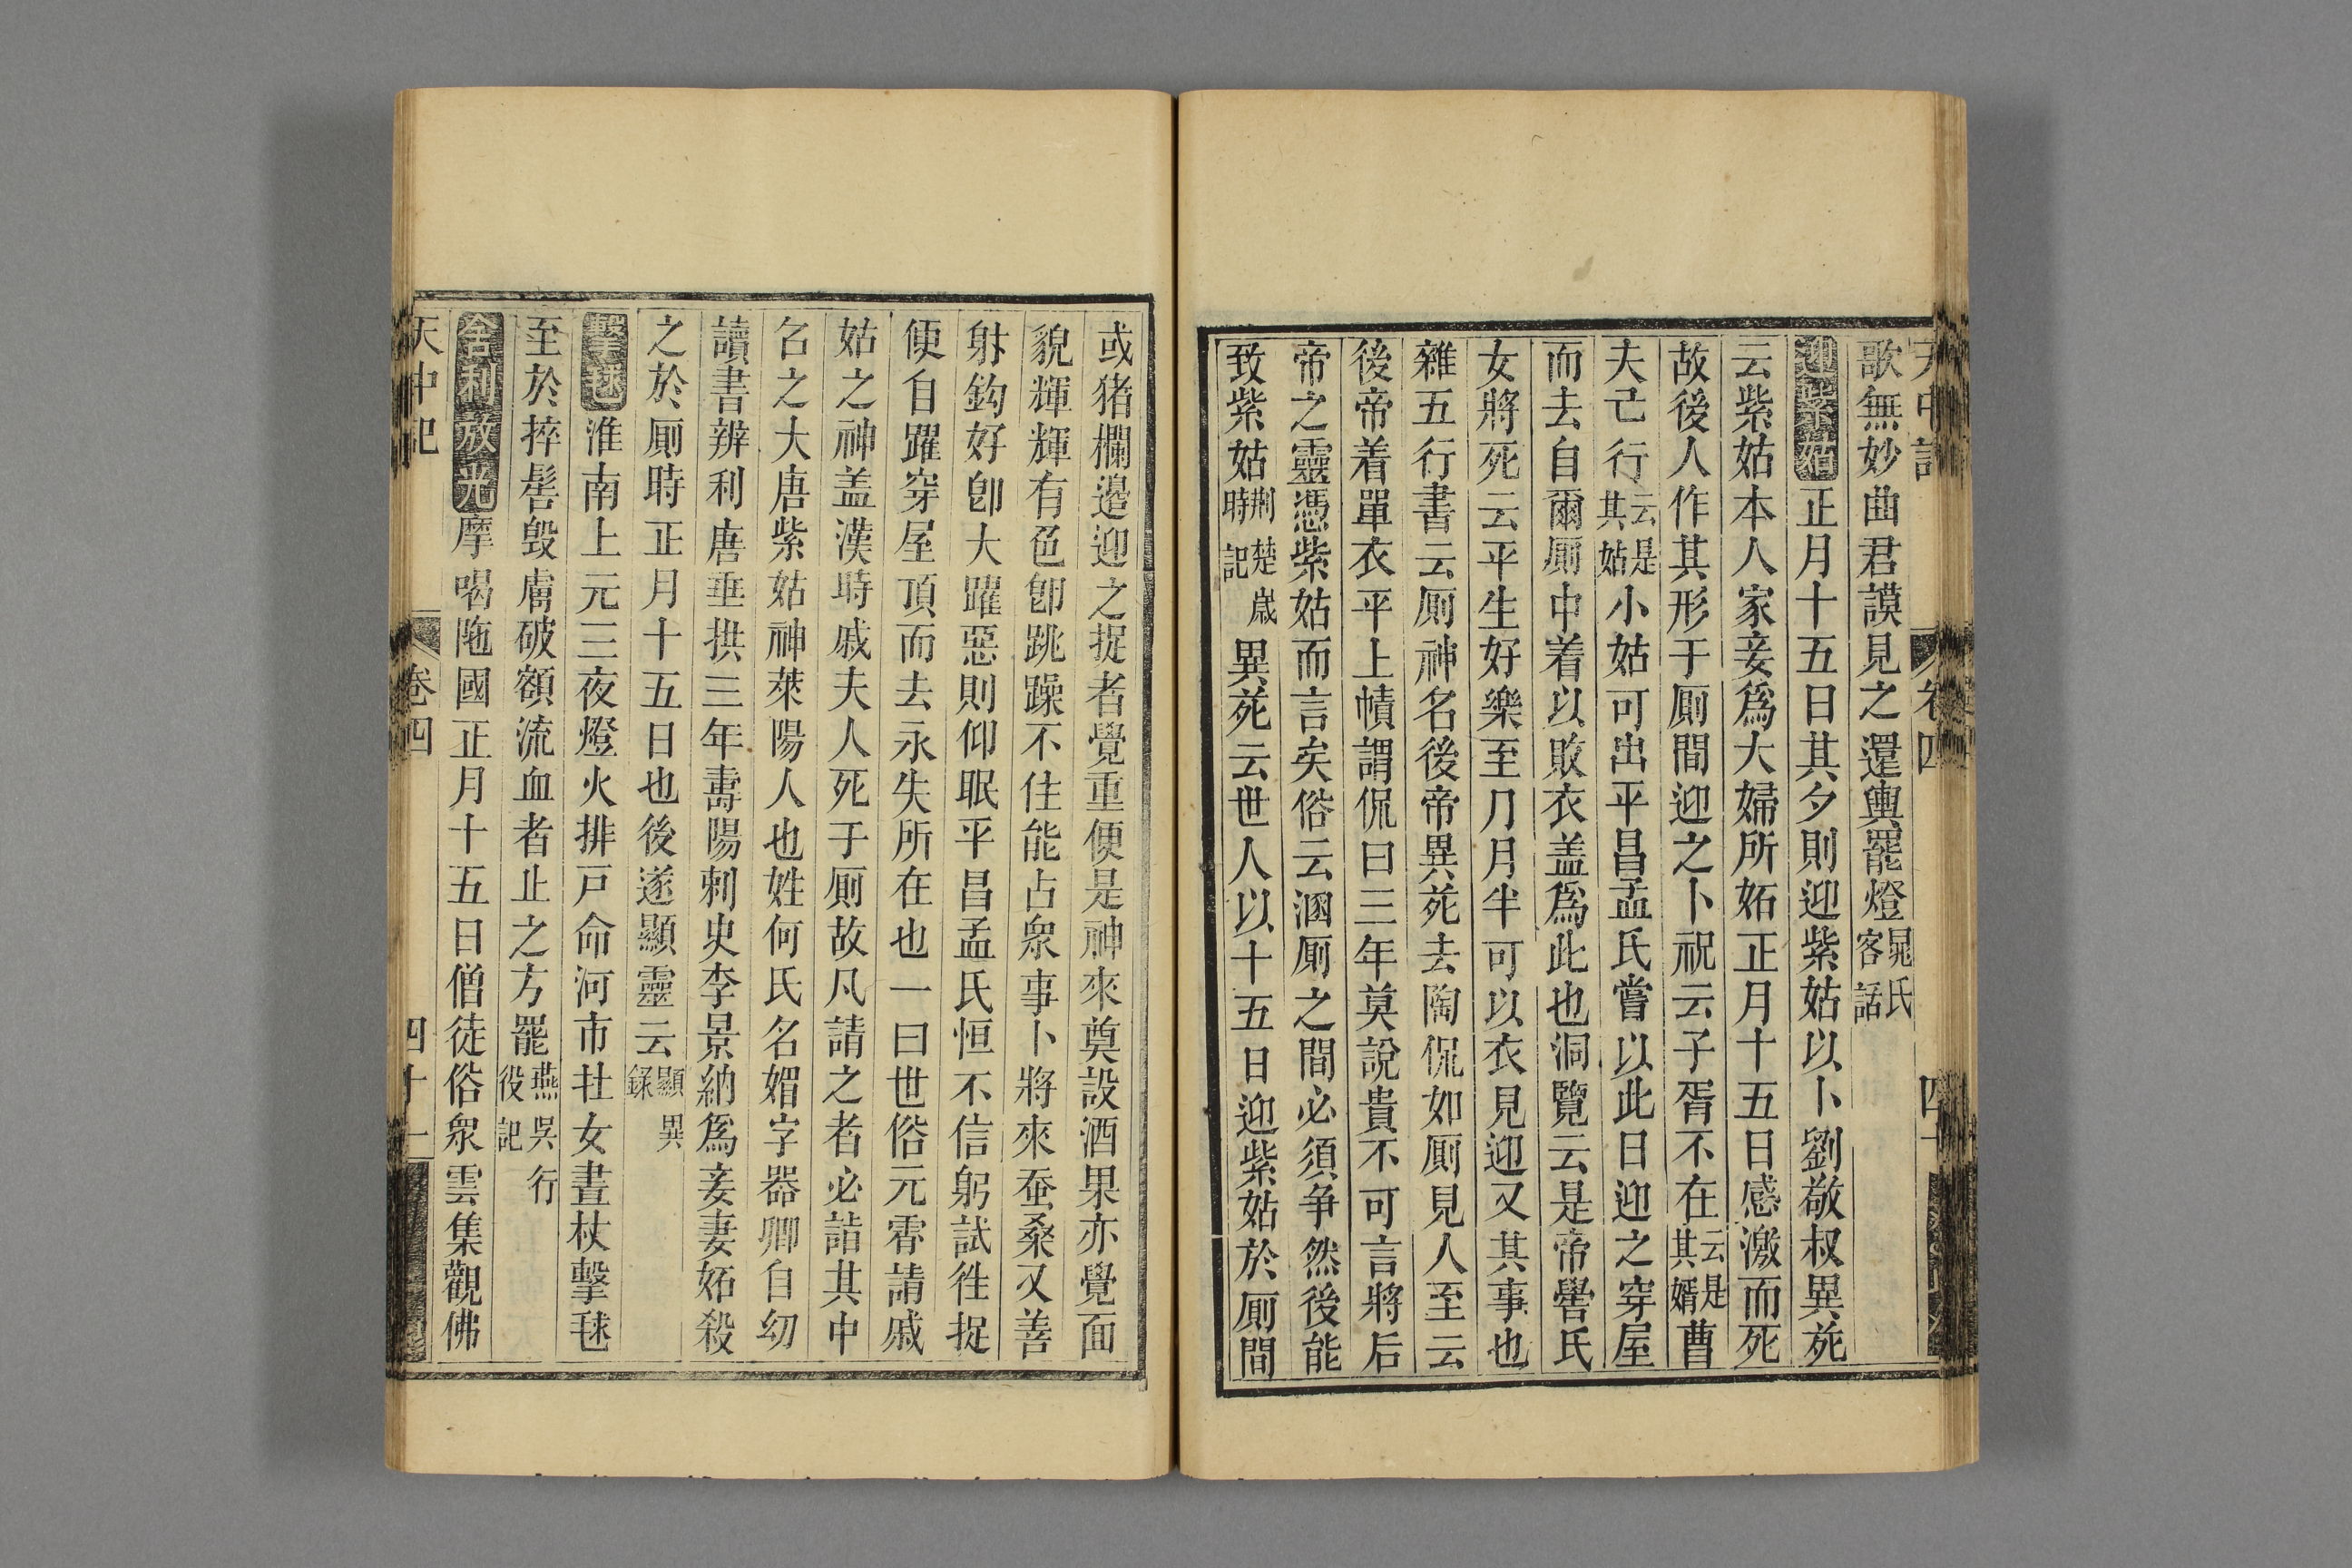 天中記 卷四 四十
歌無妙曲君謨見之還輿罷燈晁氏客話
迎紫姑正月十五日其夕則迎紫姑以卜劉敬叔異苑
云紫姑本人家妾爲大婦所妬正月十五日感激而死
故後人作其形于厠間迎之卜祝云子胥不在云是其婿曹
夫已行云是其姑小姑可出平昌孟氏嘗以此日迎之穿屋
而去自爾厠中着以敗衣盖爲此也洞覽云是帝嚳氏
女將死云平生好樂至月月半可以衣見迎又其事也
雜五行書云厠神名後帝異苑去陶侃如厠見人至云
後帝着單衣平上幘謂侃曰三年莫說貴不可言將后
帝之靈憑紫姑而言矣俗云溷厠之間必須争然後能
致紫姑荆楚歲時記異苑云世人以十五日迎紫姑於厠間
或猪欄邉迎之捉者覺重便是神來奠設酒果亦覺面
貌輝輝有色卽跳躁不住能占衆事卜將來蚕桑又善
射鈎好卽大躍惡則仰眠平昌孟氏恒不信躬試徃捉
便自躍穿屋頂而去永失所在也一曰世俗元霄請戚
姑之神盖漢時戚夫人死于厠故凡請之者必詰其中
名之大唐紫姑神萊陽人也姓何氏名媚字器卿自幼
讀書辨利唐垂拱三年壽陽刺史李景納爲妾妻妬殺
之於厠時正月十五日也後遂顯靈云顯異錄
擊毬淮南上元三夜燈火排戸命河市社女晝杖擊毬
至於捽髻毁膚破額流血者止之方罷燕吳行役記
舍利放光摩喝陁國正月十五日僧徒俗衆雲集觀佛
天中記 卷四 四十一